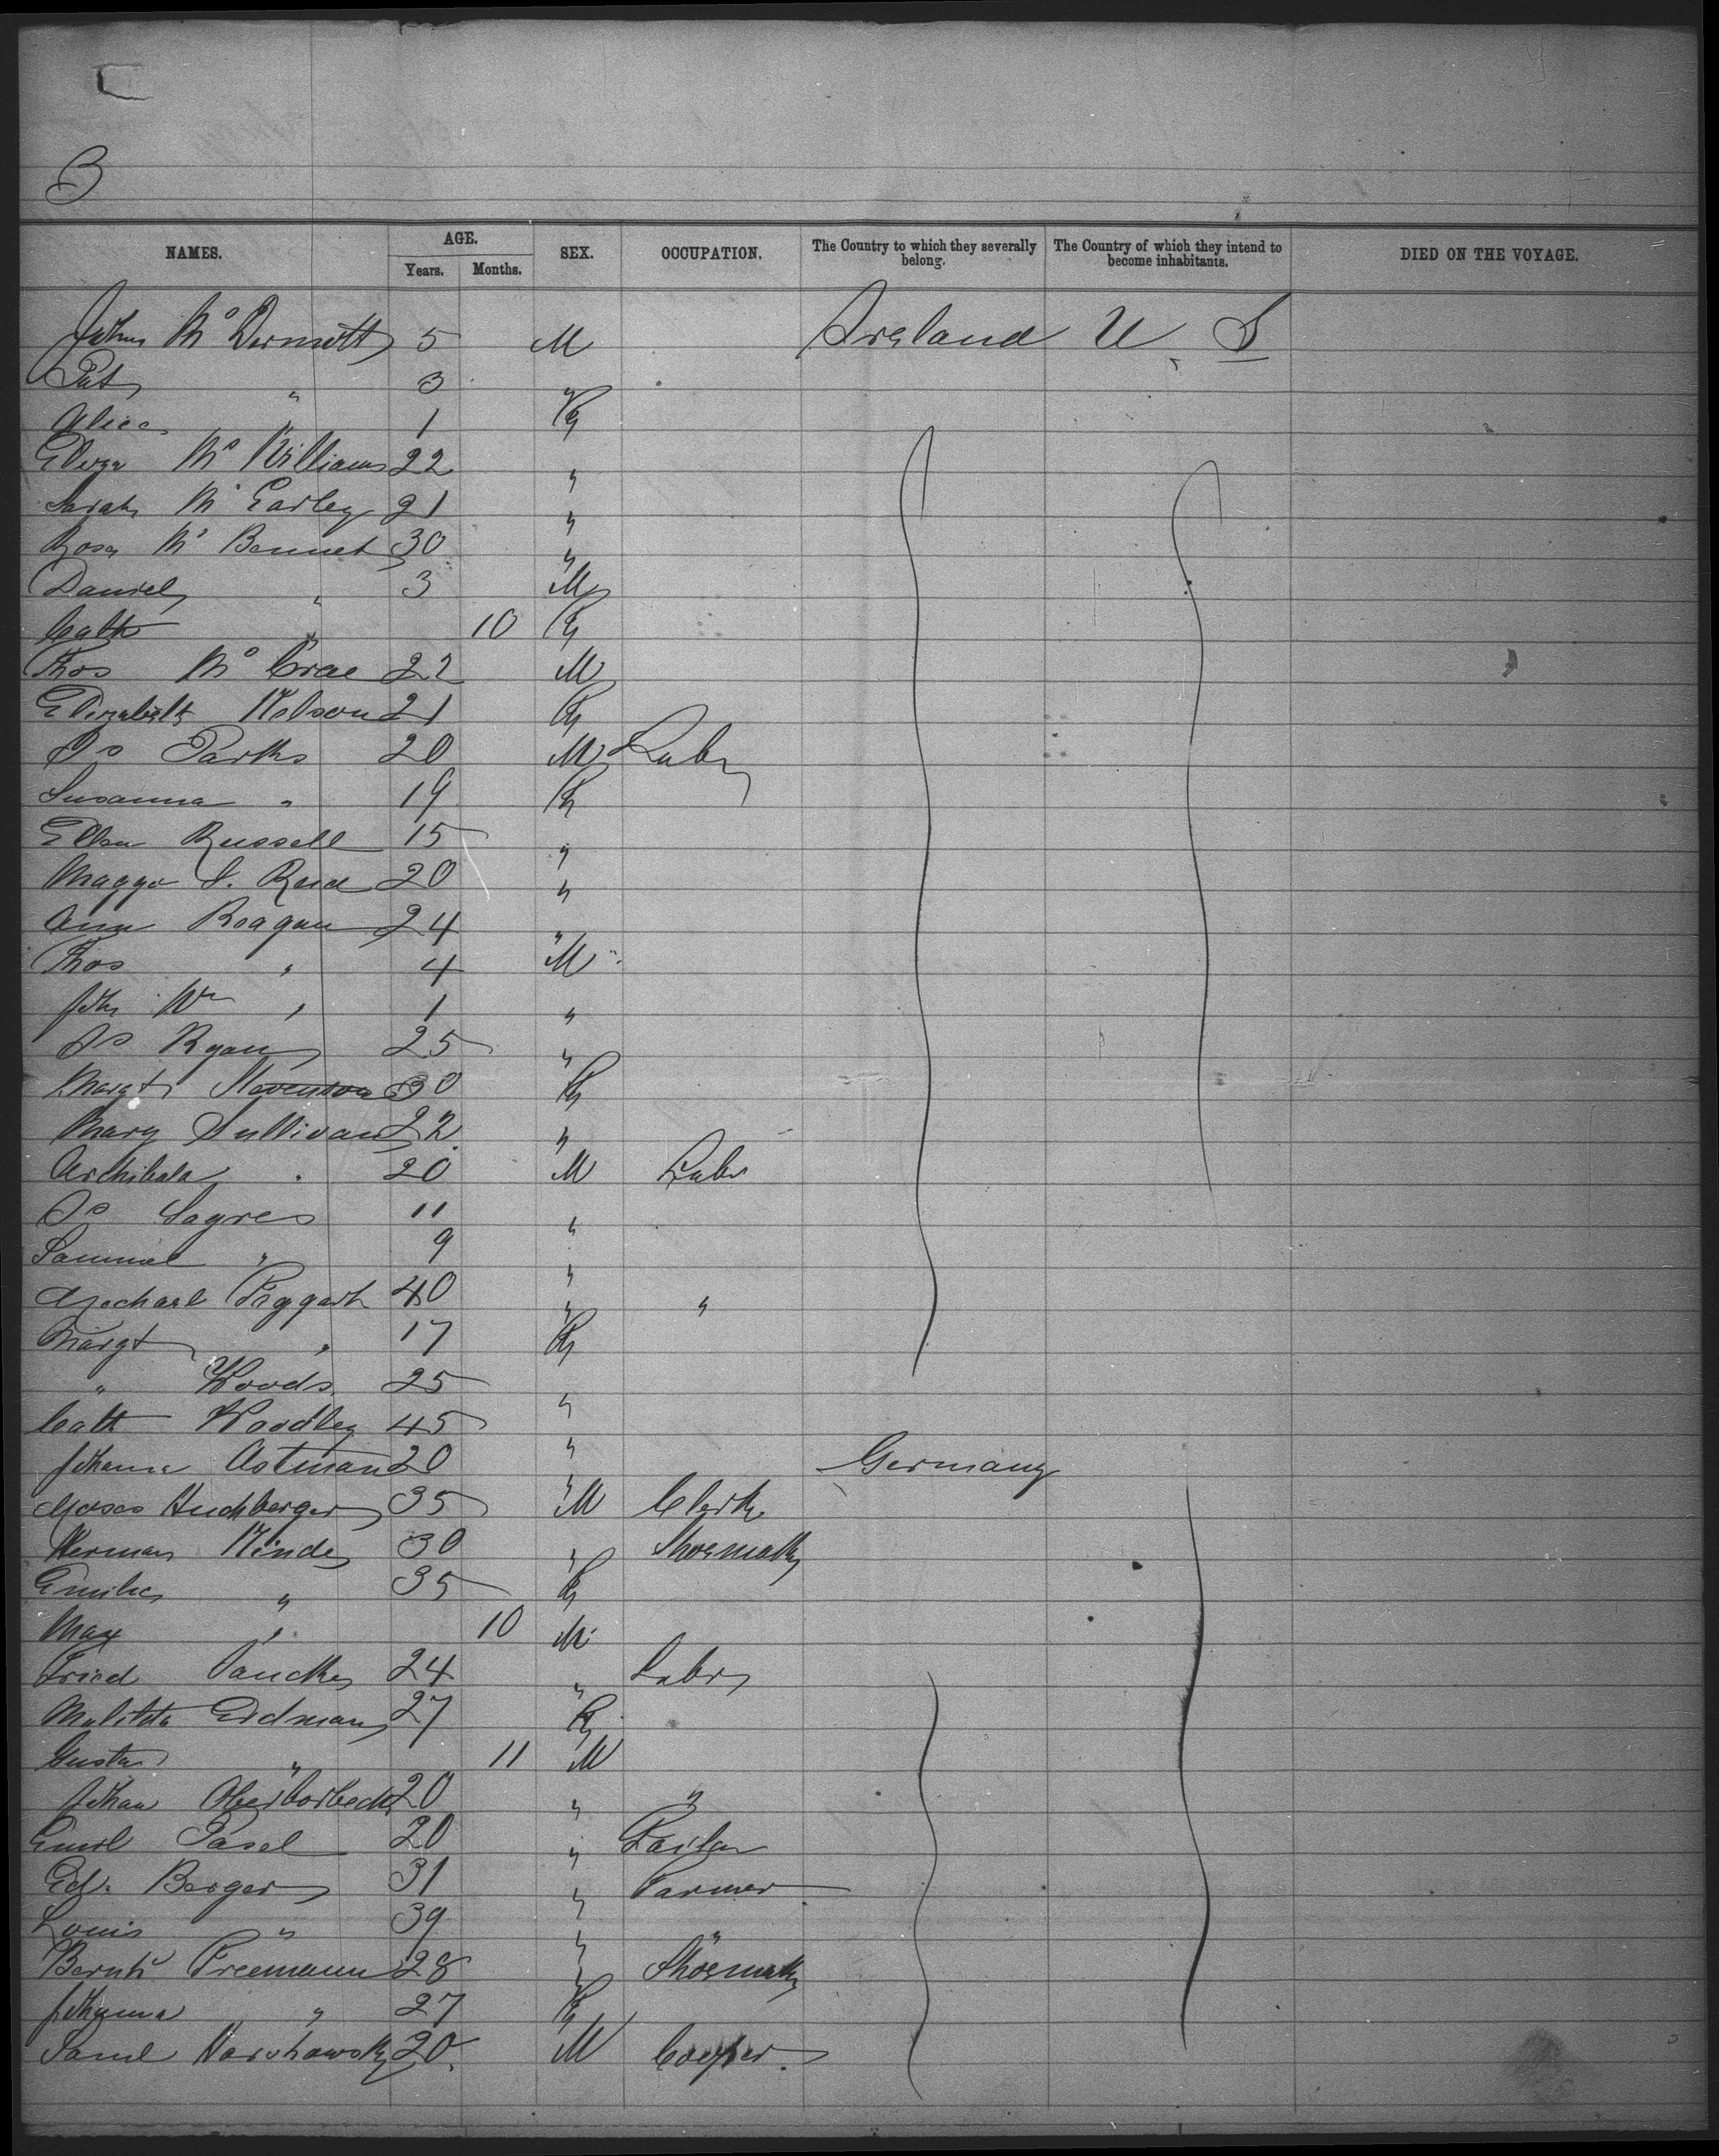 3
NAMES. AGE. SEX. OCCUPATION. The Country to which they severally belong. The Country of which they intend to become inhabitants. DIED ON THE VOYAGE.
Years. Months.
John McDermott 5 M Ireland U. S
Pat " 3 "
Alice " 1 F
Eliza McWilliams 22 "
Sarah Mc Earley 21 "
Rosa Mc Bennet 30 "
Daniel " 3 M
Cath " 10 F
Thos McCrae 22 M
Elizabeth Nelson 21 F
Js Parks 20 M Labr
Susanna " 19 F
Ellen Russell 15 "
Maggie S. Reid 20 "
Ann Reagan 24 "
Thos " 4 M
John Wm " 1 "
Js Ryan 25 "
Margt Stevenson 30 F
Mary Sullivan 22 "
Archibald " 20 M Labr
Js Sayres 11 "
Samuel " 9 "
Michael Taggart 40 " "
Margt " 17 F
" Woods 25 "
Cath Woodley 45 "
Johana Astman 20 " Germany
Moses Huchberger 35 M Clerk
Herman Kinde 30 " Shoemaker
Emilie " 35 F
Max " 10 M
Fried 24 " Labr
Matilda Erdman 27 F
Gustav " 11 M
Johan Oberborbeck 20 " "
Emil Pasel 20 " Tailor
Ed. Berger 31 " Farmer
Louis " 39 " "
Bernh Freemann 28 " Shoemaker
Johanna " 27 F
Saml Warshawsky 20 M Cooper